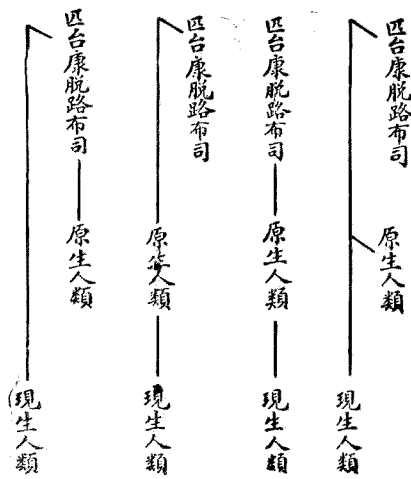 匹台康脱路布司
原生人類
現生人類
匹台康脱路布司
原生人類
現生人類
匹台康脱路布司
原生人類
現生人類
匹台康脱路布司
原生人類
現生人類